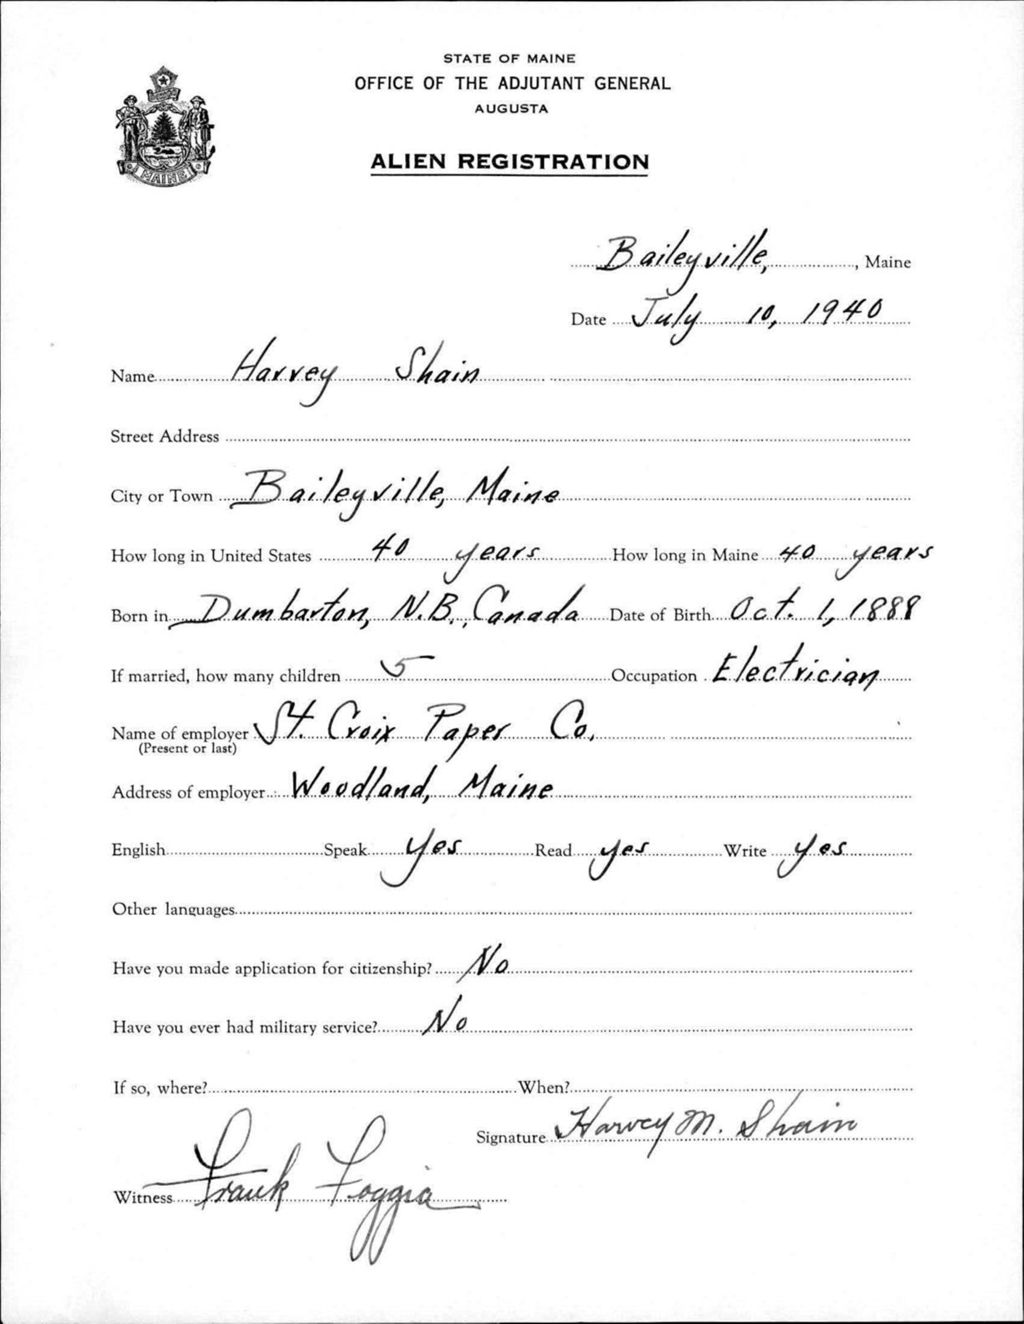 STATE OF MAINE
OFFICE OF THE ADJUTANT GENERAL
AUGUSTA
ALIEN REGISTRATION
MAINE
Baileyville, , Maine
Date July 10, 1940
Name Harvey Shain
Street Address
City or Town Baileyville, Maine
How long in United States 40 years How long in Maine 40 years
Born in Dumbarton, N.B., Canada Date of Birth Oct. 1, 1888
If married, how many children 5 Occupation Electrician
Name of employer St. Croix Paper Co.
(Present or last)
Address of employer Woodland, Maine
English Speak Yes Read yes Write Yes
Other languages
Have you made application for citizenship? No
Have you ever had military service? No
If so, where? When?
Signature Harvey M. Shain
Witness Frank Foggia